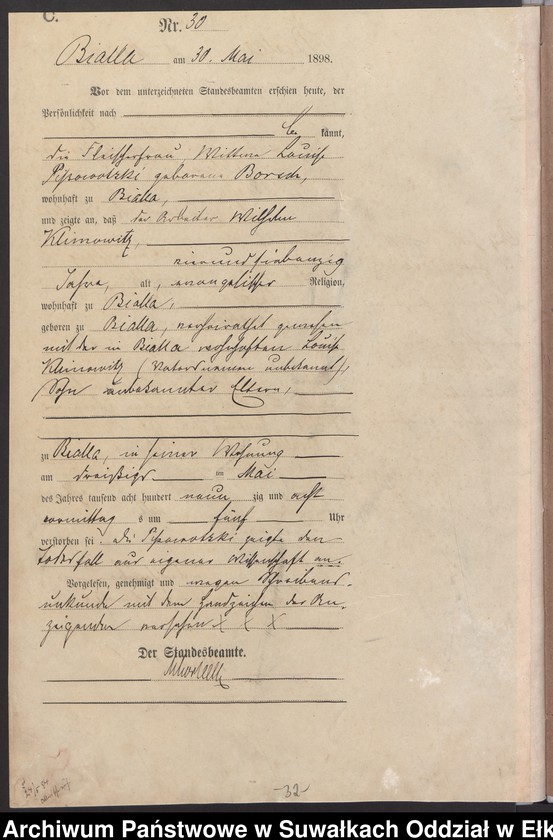 C.
Nr. 30
Bialla am 30. Mai 1898.
Vor dem unterzeichneten Standesbeamten erschien heute, der
Persönlichkeit nach
be kannt,
die Fleischerfrau, Wittwe Louise
geborene
wohnhaft zu Bialla,
und zeigte an, daß der Arbeiter Wilhelm
Klimowitz,
vierundsiebenzig
Jahre, alt, evangelischer Religion,
wohnhaft zu Bialla,
geboren zu Bialla, verheirathet gewesen
mit der in Bialla verstorbenen Louise
Klimowitz (Vatersnamen unbekannt),
Sohn unbekannter Eltern,
zu Bialla, in seiner Wohnung
am dreißigs im Mai
des Jahres tausend acht hundert neun zig und acht
vormittag s um fünf Uhr
verstorben sei. Die zeigte den
Todesfall aus eigener Wissenschaft an.
Vorgelesen, genehmigt und wegen Schreibens-
unkunde mit dem Handzeichen der An-
zeigenden versehen X X X
Der Standesbeamte.
-32-
Archiwum Państwowe w Suwałkach Oddział w Ełk